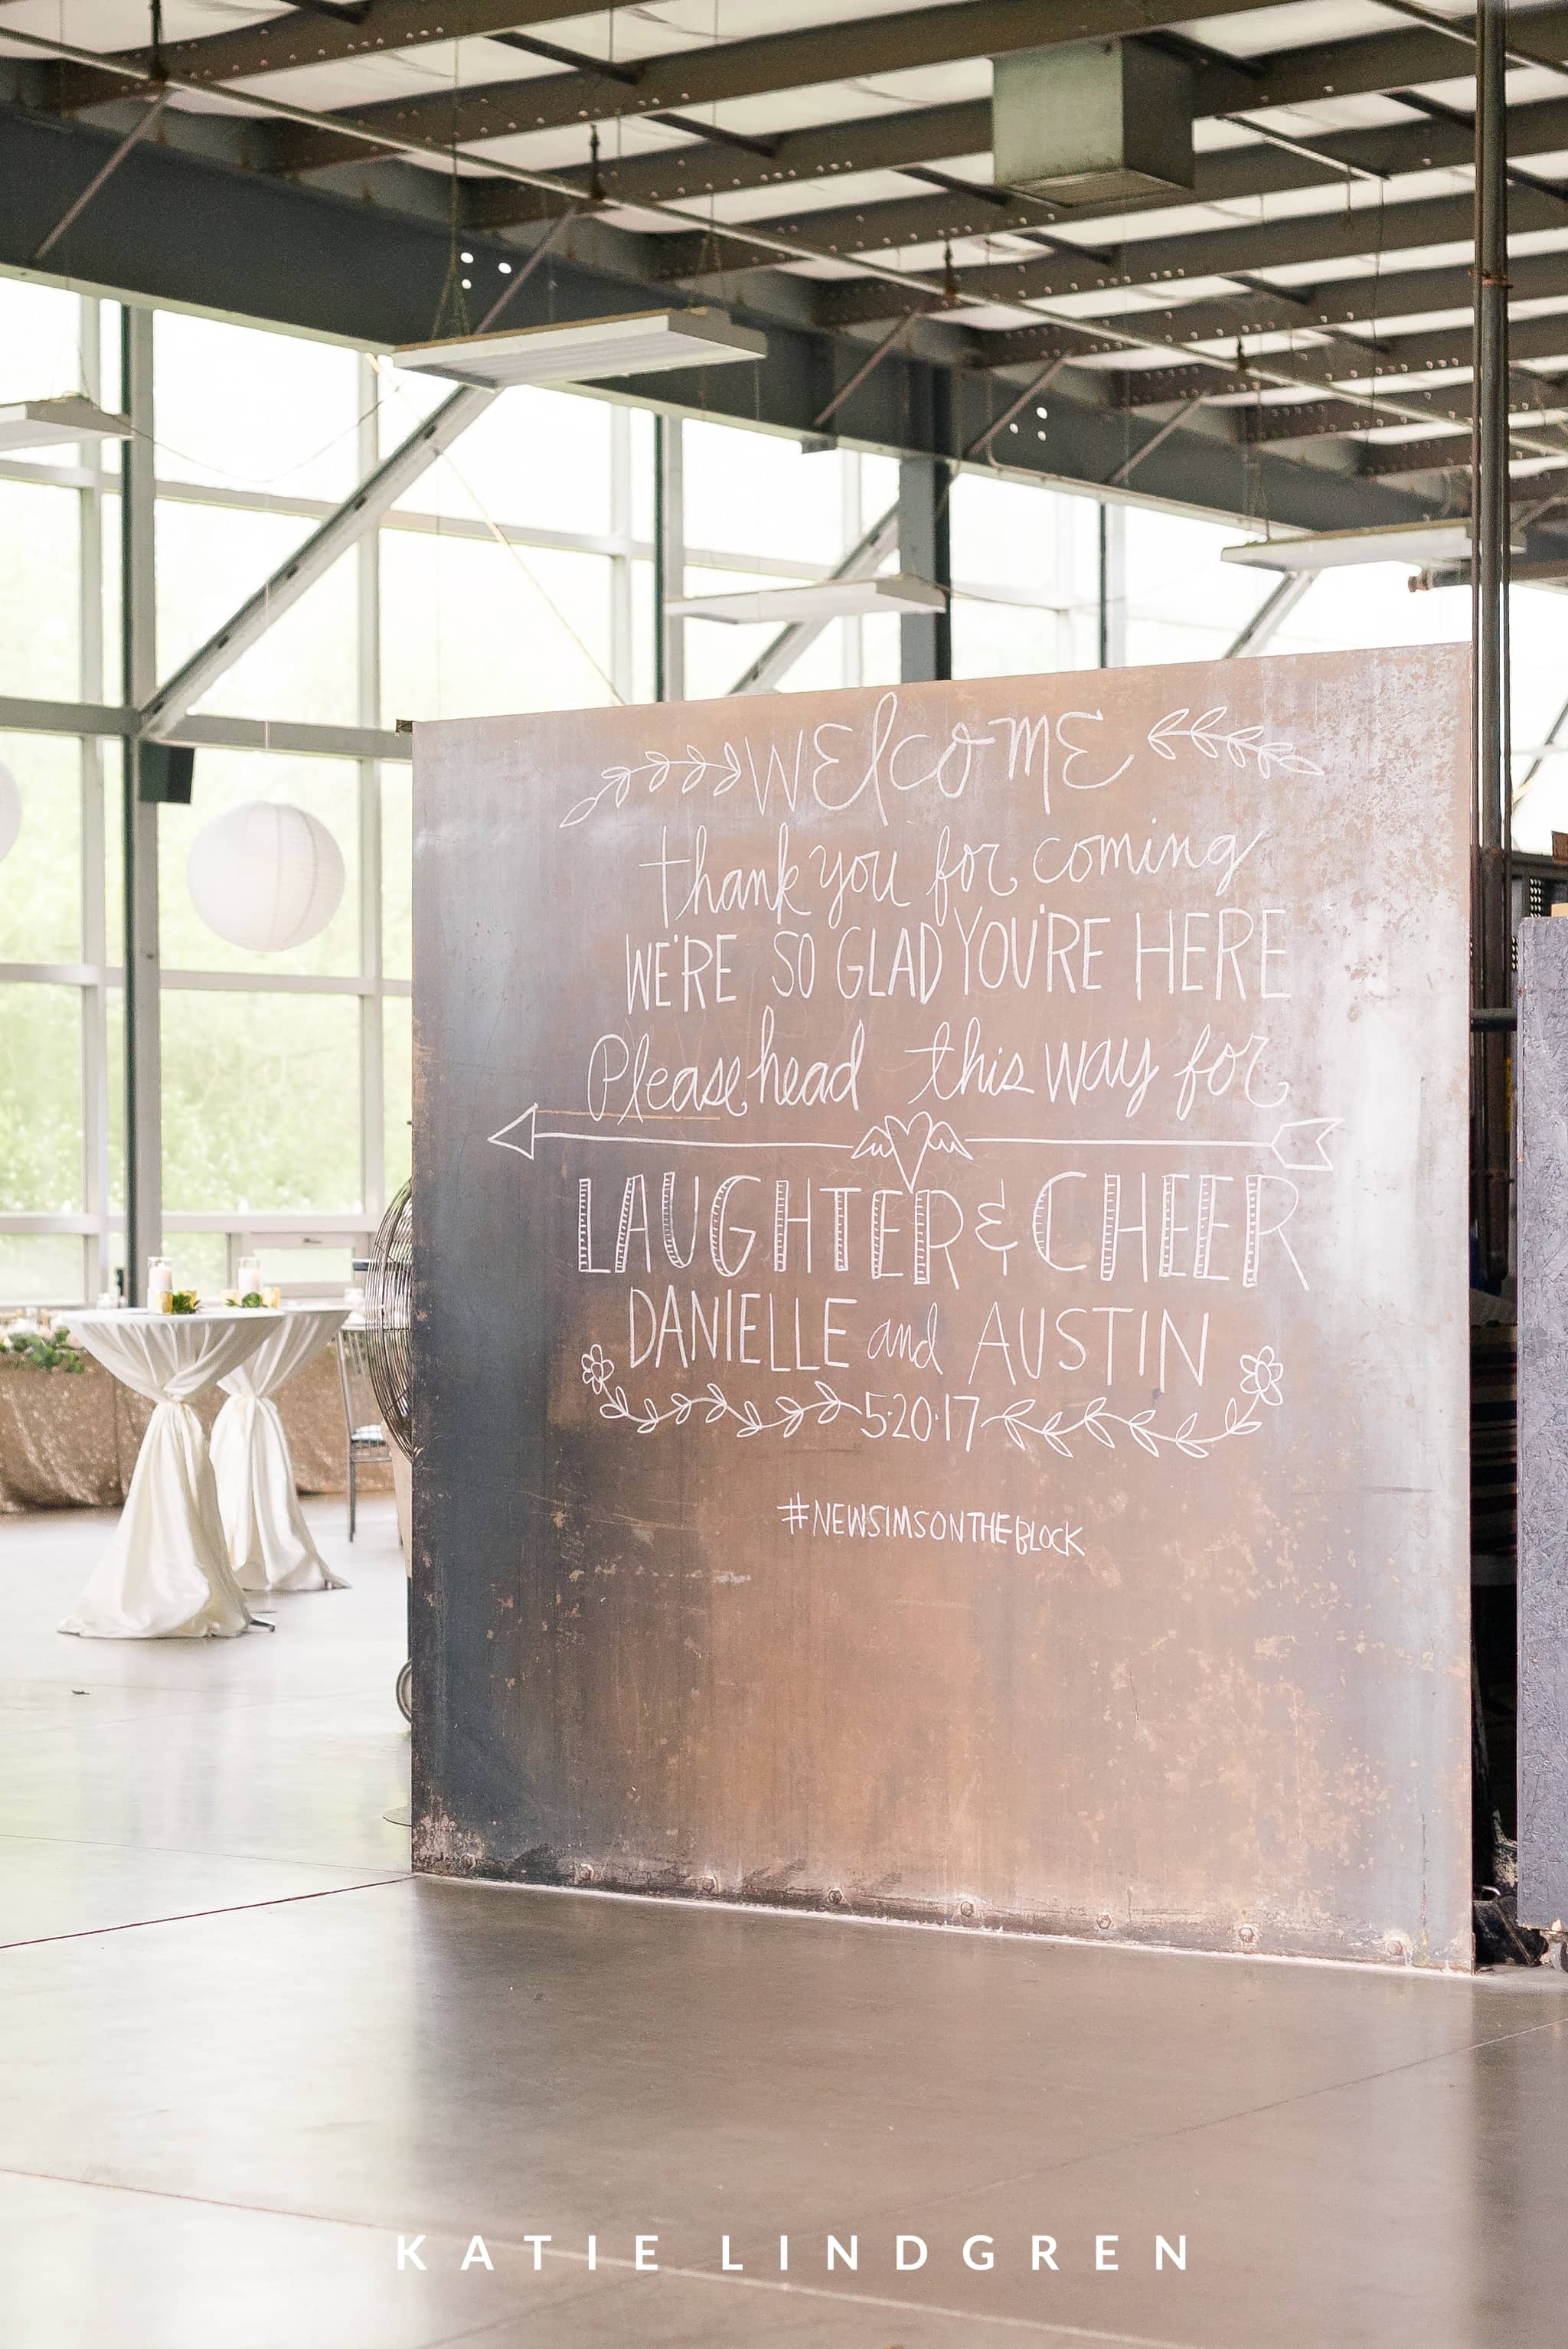 WElcomE
thank you for coming
WE'RE SO GLAD YOU'RE HERE
Please head this way for
LAUGHTER & CHEER
DANIELLE and AUSTIN
5·20·17
#NEWSIMSONTHEBLOCK
KATIE LINDGREN